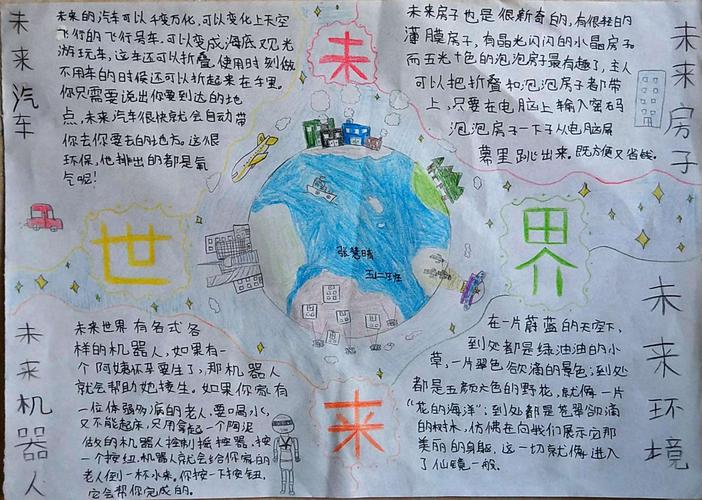 未来汽车
未来的汽车可以千变万化，可以变化上天空
飞行的飞行号车，可以变成海底观光
游玩车，这车还可以折叠，使用时刻做
不用车的时候还可以折起来在手里。
你只需要说出你要到达的地
点，未来汽车很快就会自动带
你去你要去的地方。这很
环保，他排出的都是氧
气呢！
未
未来房子也是很新奇的，有很轻的
薄膜房子，有晶光闪闪的水晶房子
而五光十色的泡泡房子最有趣了，主人
可以把折叠和泡泡房子都带
上，只要在电脑上输入密码
泡泡房子一下子从电脑屏
幕里跳出来。既方便又省钱。
未来房子
世
界
张慧晴
五二班
未来机器人
未来世界有各式各
样的机器人，如果有一
个阿姨怀孕要生了，那机器人
就会帮助她接生。如果你家有
一位体弱多病的老人，要喝水，
又不能起床，只用拿起一个陶泥
做的机器人控制摇控器，按
一个按钮，机器人就会给你家的
老人倒一杯水来。你按一下按钮，
它会帮你完成的。
来
在一片蔚蓝的天空下，
到处都是绿油油的小
草，一片翠色欲滴的景色；到处
都是五颜六色的野花，就像一片
“花的海洋”；到处都是苍翠欲滴
的树木，仿佛在向我们展示它那
美丽的身躯，这一切就像进入
了仙镜一般。
未来环境